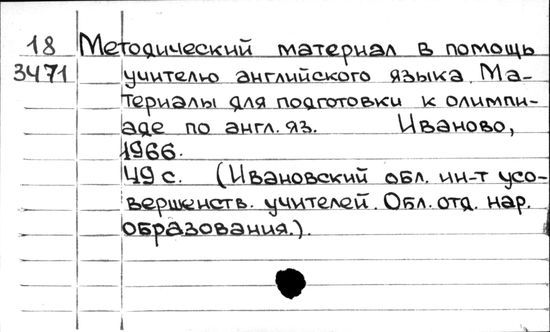 18 Методический материал в помощь
3471 учителю английского языка. Ма-
териалы для подготовки к олимпи-
аде по англ. яз. Иваново,
1966.
49 с. (Ивановский обл. ин-т усо-
вершенств. учителей. Обл. отд. нар.
образования.).